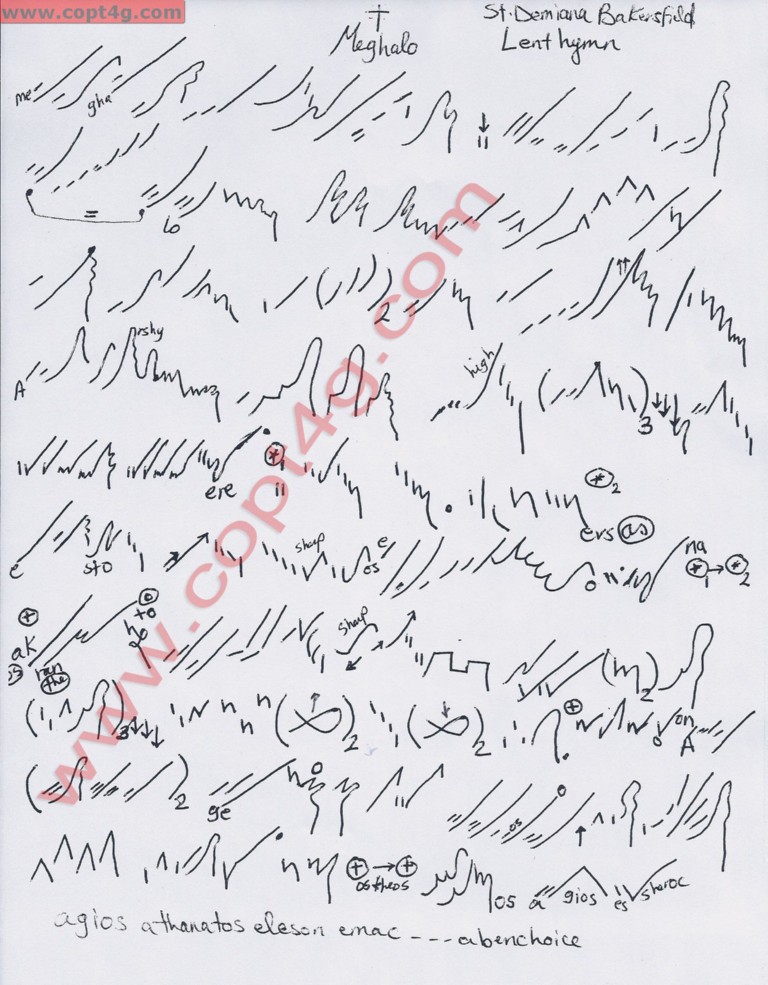 www.copt4g.com
St. Demiana Bakersfield
Meghalo
Lent hymn
me gha
lo
2
A rshy high 3
ere ii 2
ers as
e sto sharp os e na 1 → 2
ak ran the to sharp 2
3 2 2 on A
2 ge os
os theos os a gios es
agios athanatos eleson emac --- abenchoice
www.copt4g.com